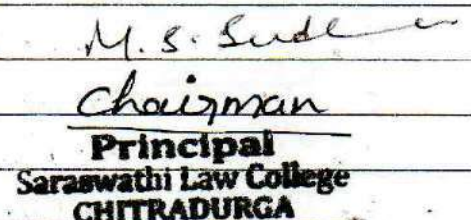 M. S. Sude
Chairman
Principal
Saraswathi Law College
CHITRADURGA